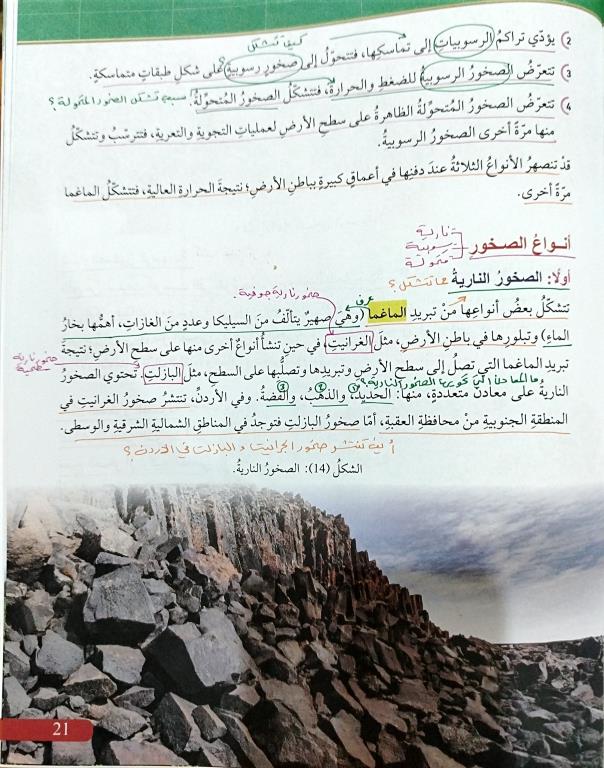 كيف تتشكل
2) يؤدّي تراكمُ الرسوبياتِ إلى تماسكِها، فتتحوّلُ إلى صخورٍ رسوبيةٍ على شكلِ طبقاتٍ متماسكةٍ.
3) تتعرّضُ الصخورُ الرسوبيةُ للضغطِ والحرارةِ، فتتشكّلُ الصخورُ المُتحوِّلةُ.
تشكل الصخور المتحولة؟
4) تتعرّضُ الصخورُ المُتحوِّلةُ الظاهرةُ على سطحِ الأرضِ لعملياتِ التجويةِ والتعريةِ، فتترسّبُ وتتشكّلُ
منها مرّةً أخرى الصخورُ الرسوبيةُ.
قدْ تنصهرُ الأنواعُ الثلاثةُ عندَ دفنِها في أعماقٍ كبيرةٍ بباطنِ الأرضِ؛ نتيجةَ الحرارةِ العاليةِ، فتتشكّلُ الماغما
مرّةً أخرى.
أنـواعُ الصخور
نارية
رسوبية
متحولة
أولًا: الصخورُ الناريةُ
مما تتشكل؟
صخور نارية جوفية.
عرف
تتشكّلُ بعضُ أنواعِها منْ تبريدِ الماغما (وهيَ صهيرٌ يتألّفُ منَ السيليكا وعددٍ منَ الغازاتِ، أهمُّها بخارُ
الماءِ) وتبلورِها في باطنِ الأرضِ، مثلَ الغرانيتِ، في حين تنشأُ أنواعٌ أخرى منها على سطحِ الأرضِ؛ نتيجةَ
صخور نارية سطحية
تبريدِ الماغما التي تصلُ إلى سطحِ الأرضِ وتبريدِها وتصلُّبِها على السطحِ، مثلَ البازلتِ. تحتوي الصخورُ
ما المعادن التي تحويها الصخور النارية؟
الناريةُ على معادنَ متعددةٍ، منها: الحديدُ، والذهبُ، والفضةُ. وفي الأردنِّ، تنتشرُ صخورُ الغرانيت في
1 2 3
المنطقةِ الجنوبيةِ منْ محافظةِ العقبةِ، أمّا صخورُ البازلتِ فتوجدُ في المناطقِ الشماليةِ الشرقيةِ والوسطى.
أين تنتشر صخور الجرانيت و البازلت في الأردن؟
الشكلُ (14): الصخورُ الناريةُ.
21